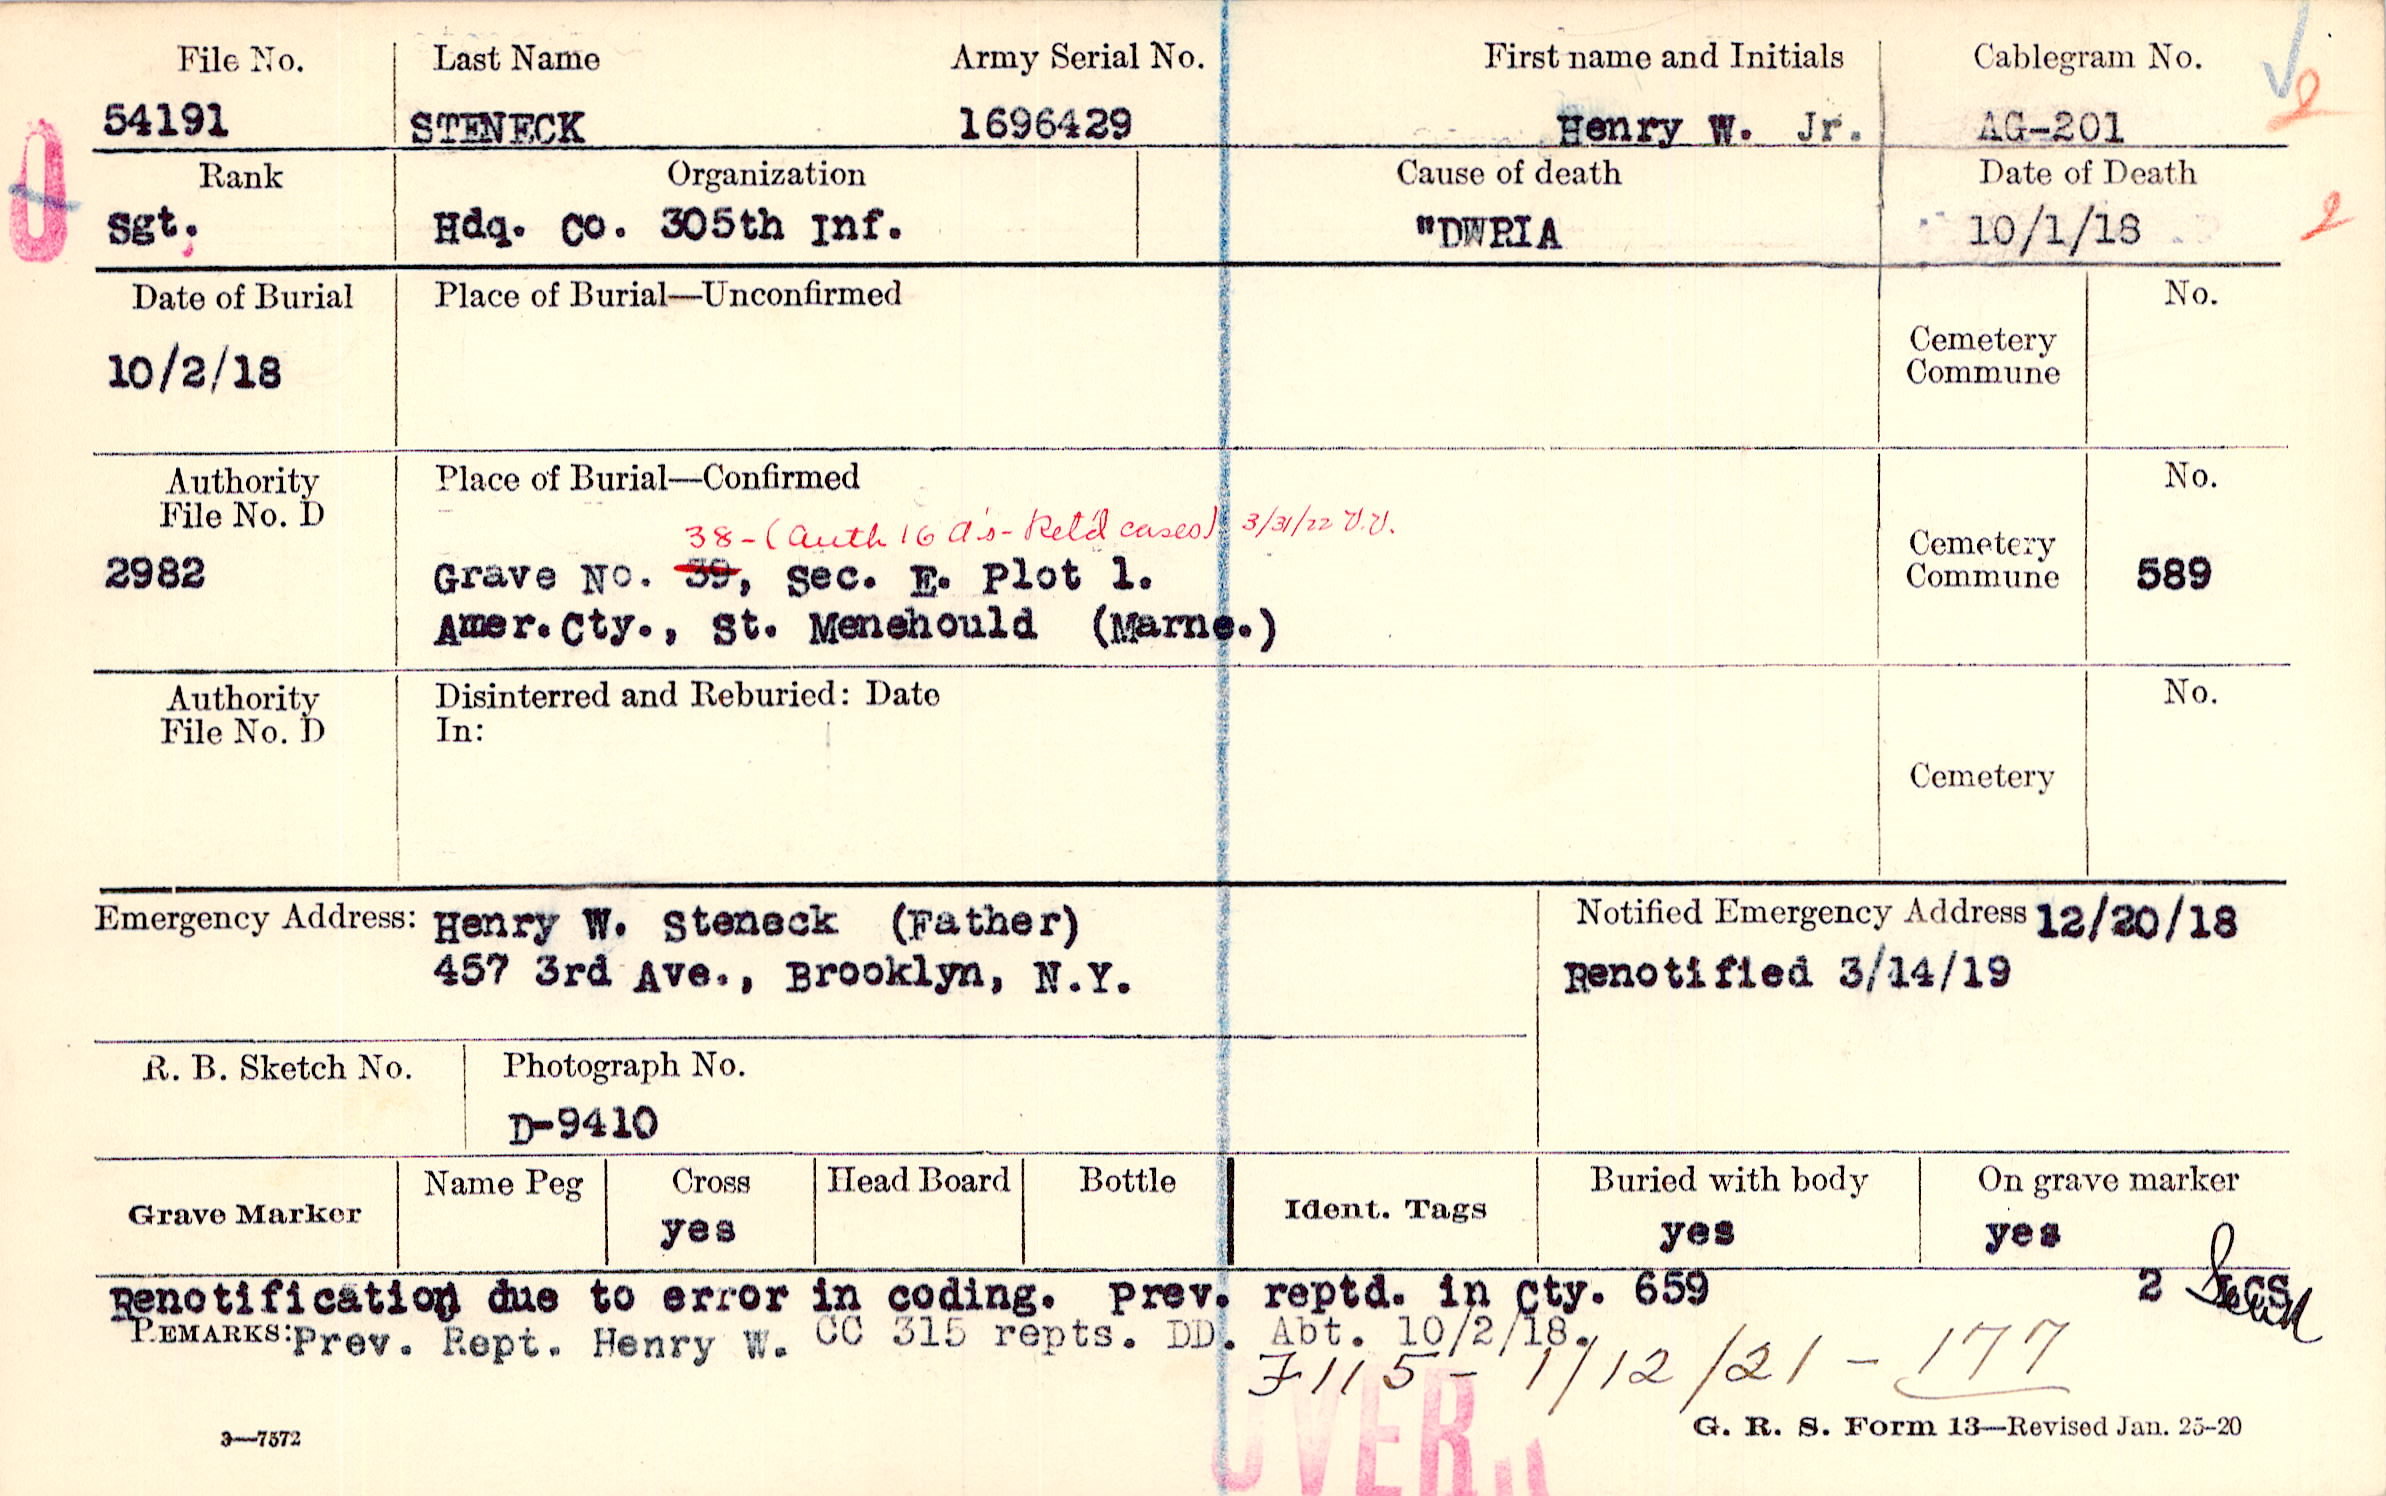 File No. Last Name Army Serial No. First name and Initials Cablegram No.
54191 STENECK 1696429 Henry W. Jr. AG-201
2
Rank Organization Cause of death Date of Death
Sgt. Hdq. Co. 305th Inf. "DWRIA 10/1/18
2
Date of Burial Place of Burial—Unconfirmed No.
10/2/18 Cemetery
Commune
Authority Place of Burial—Confirmed No.
File No. D
38-(Auth 16 a's- Ret'd cases) 3/31/22 V.V.
2982 Grave No. 39, Sec. E. Plot 1. Cemetery
Commune 589
Amer.Cty., St. Menehould (Marne.)
Authority Disinterred and Reburied: Date No.
File No. D In:
Cemetery
Emergency Address: Henry W. Steneck (Father) Notified Emergency Address 12/20/18
457 3rd Ave., Brooklyn, N.Y. Renotified 3/14/19
R. B. Sketch No. Photograph No.
D-9410
Grave Marker Name Peg Cross Head Board Bottle Ident. Tags Buried with body On grave marker
yes yes yes
Renotification due to error in coding. Prev. reptd. in Cty. 659 2
REMARKS: Prev. Rept. Henry W. CC 315 repts. DD. Abt. 10/2/18.
F115 - 1/12/21 - 177
OVER
3—7572 G. R. S. Form 13—Revised Jan. 25-20